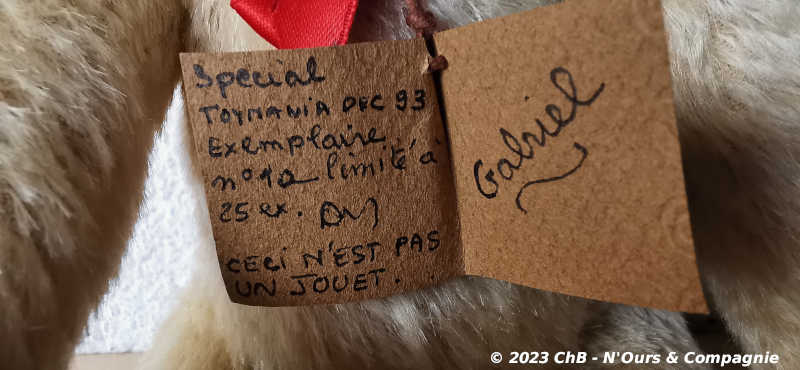 Special
TOYMANIA DEC 93
Exemplaire
n° 12 limité à
25 ex.
CECI N'EST PAS
UN JOUET.
Gabriel
© 2023 ChB - N'Ours & Compagnie